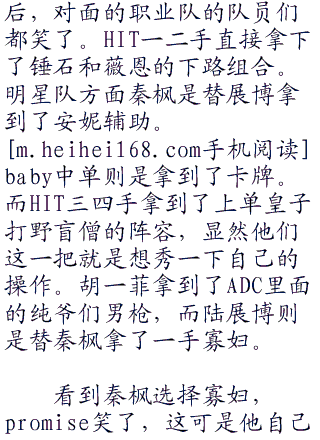 后，对面的职业队的队员们
都笑了。HIT一二手直接拿下
了锤石和薇恩的下路组合。
明星队方面秦枫是替展博拿
到了安妮辅助。
[m.heihei168.com手机阅读]
baby中单则是拿到了卡牌。
而HIT三四手拿到了上单皇子
打野盲僧的阵容，显然他们
这一把就是想秀一下自己的
操作。胡一菲拿到了ADC里面
的纯爷们男枪，而陆展博则
是替秦枫拿了一手寡妇。
看到秦枫选择寡妇，
promise笑了，这可是他自己